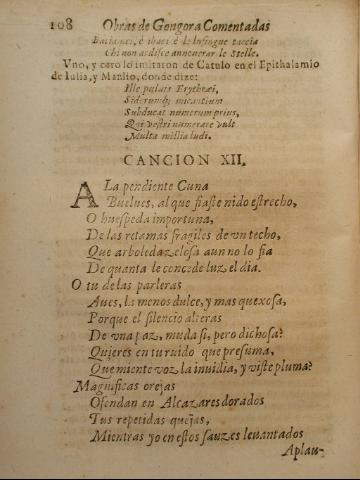 108 Obras de Gongora Comentadas
Chi non ardisce annonerar le Stelle.
Vno, y otro lo imitaron de Catulo en el Epithalamio
de Iulia, y Manlio, donde dize:
Ille pulais Erythræi,
Siderumq; micantium
Subducat numerum prius,
Qui vestri numerare vult
Multa millia ludi.
CANCION XII.
A La pendiente Cuna
Buelues, al que fiaste nido estrecho,
O huespeda importuna,
De las retamas fragiles de vn techo,
Que arboleda zelosa aun no lo fia
De quanta le concede luz el dia.
O tu de las parleras
Aues, la menos dulce, y mas quexosa,
Porque el silencio alteras
De vna paz, muda si, pero dichosa?
Quieres en tu ruido que presuma,
Que miente voz la inuidia, y viste pluma?
Magnificas orejas
Ofendan en Alcazares dorados
Tus repetidas quejas,
Mientras yo en estos sauzes leuantados
Aplau-